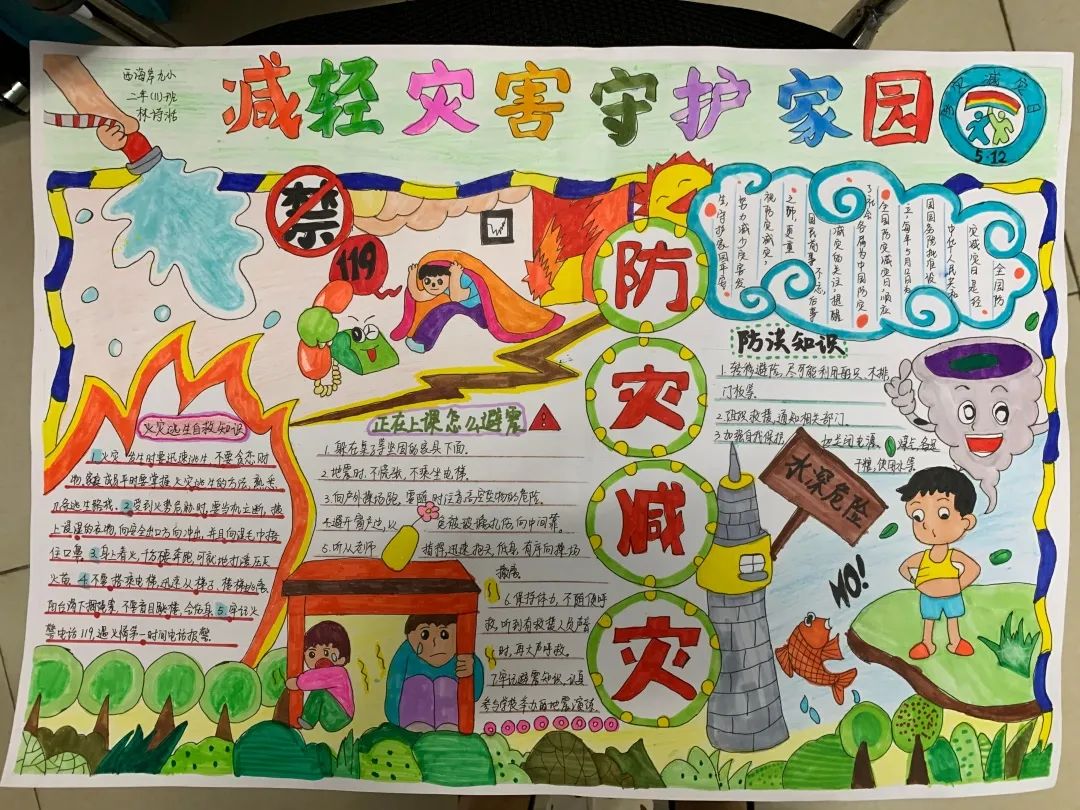 西海岸九小
二年(11)班
减轻灾害守护家园
防灾减灾
5·12
禁
119
防
灾
减
灾
全国防
灾减灾日是经
中华人民共和
国国务院批准设
立,每年5月12日为
全国防灾减灾日,顺应
了社会各届为中国防灾
减灾的关注,提醒
国民前事不忘后事
之师,更重
视防灾减灾,
努力减少灾害发
生,守护家园平安
防洪知识
1.转移避险,尽可能利用船只、木排、
门板等
2.组织救援,通知相关部门
3.加强自我保护
切关闭电源
煤气,备足
干粮,饮用水等
水深危险
NO!
正在上课怎么避震
1.躲在桌子等坚固的家具下面.
2.地震时,不慌张,不乘坐电梯.
3.向户外操场跑,要随时注意高空落物的危险.
4.避开窗户边,以
免被玻璃扎伤,向中间靠.
5.听从老师
指挥,迅速抱头、低身、有序向操场
撤离.
6.保持体力,不随便呼
救,听到有救援人员声音
时,再大声呼救.
7.牢记避震知识,认真
参与学校举办的地震演练
火灾逃生自救知识
1.火灾发生时要迅速逃生,不要贪恋财
物,家庭成员平时要掌握火灾逃生的方法,熟悉
几条逃生路线.2.受到火势启胁时,要当机立断,披
上浸湿的衣物,向安全出口方向冲出,并且向湿毛巾捂
住口鼻3.身上着火,千万不要奔跑,可就地打滚压灭
火苗.4.不要搭乘电梯,迅速从梯子、楼梯逃离.
警电话119,遇火情第一时间电话报警.